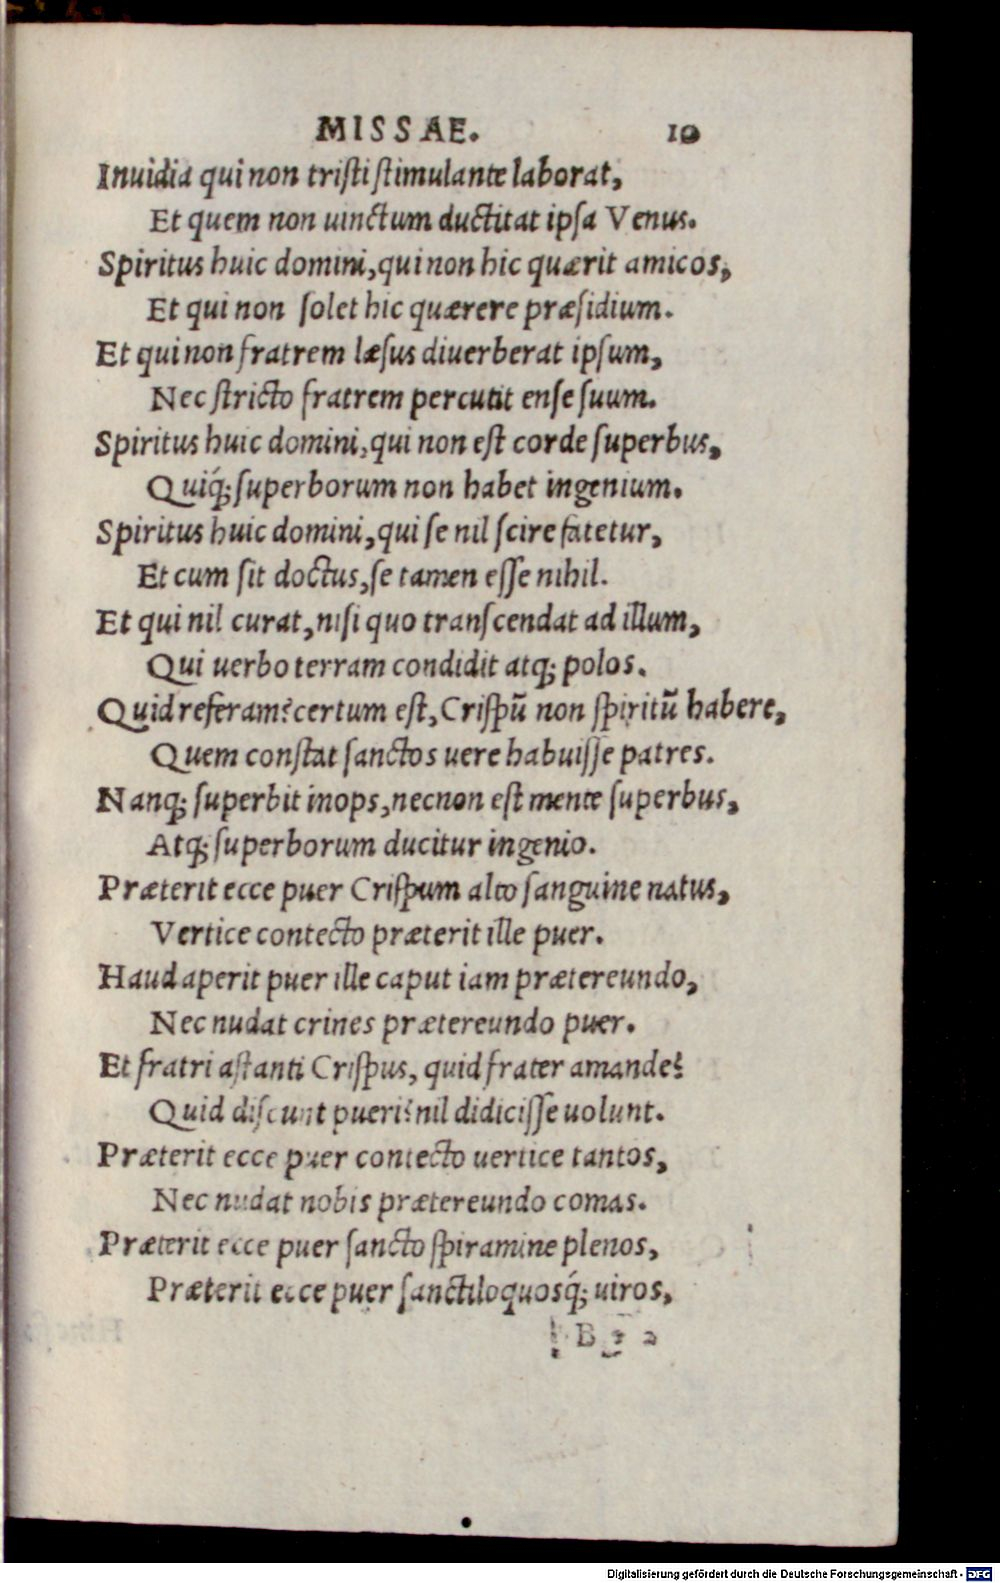 MISSAE. 10
Inuidia qui non tristi stimulante laborat,
Et quem non uinctum ductitat ipsa Venus.
Spiritus huic domini, qui non hic quærit amicos,
Et qui non solet hic quærere præsidium.
Et qui non fratrem læsus diuerberat ipsum,
Nec stricto fratrem percutit ense suum.
Spiritus huic domini, qui non est corde superbus,
Quiq́; superborum non habet ingenium.
Spiritus huic domini, qui se nil scire fatetur,
Et cum sit doctus, se tamen esse nihil.
Et qui nil curat, nisi quo transcendat ad illum,
Qui uerbo terram condidit atq; polos.
Quid referam? certum est, Crispũ non spiritũ habere,
Quem constat sanctos uere habuisse patres.
Nanq; superbit inops, necnon est mente superbus,
Atq; superborum ducitur ingenio.
Præterit ecce puer Crispum alto sanguine natus,
Vertice contecto præterit ille puer.
Haud aperit puer ille caput iam prætereundo,
Nec nudat crines prætereundo puer.
Et fratri astanti Crispus, quid frater amande?
Quid discunt pueri? nil didicisse uolunt.
Præterit ecce puer contecto uertice tantos,
Nec nudat nobis prætereundo comas.
Præterit ecce puer sancto spiramine plenos,
Præterit ecce puer sanctiloquosq́; uiros,
B 2
Digitalisierung gefördert durch die Deutsche Forschungsgemeinschaft - DFG